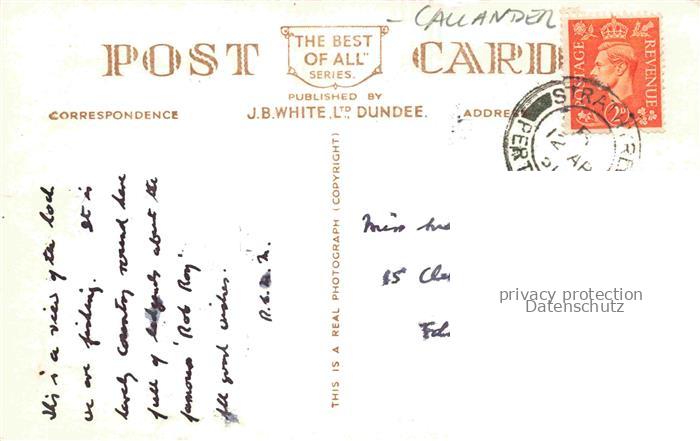 - CALLANDER
POST CARD
"THE BEST
OF ALL"
SERIES.
PUBLISHED BY
J.B.WHITE, LTD DUNDEE.
CORRESPONDENCE
ADDRESS
POSTAGE REVENUE
2D
STRATHYRE
12 AP
PERT
This is a view of the loch
we are fishing. It is
lovely country round here
full of legends about the
famous 'Rob Roy'
All good wishes.
THIS IS A REAL PHOTOGRAPH (COPYRIGHT)
Miss
15 Cle
privacy protection
Datenschutz